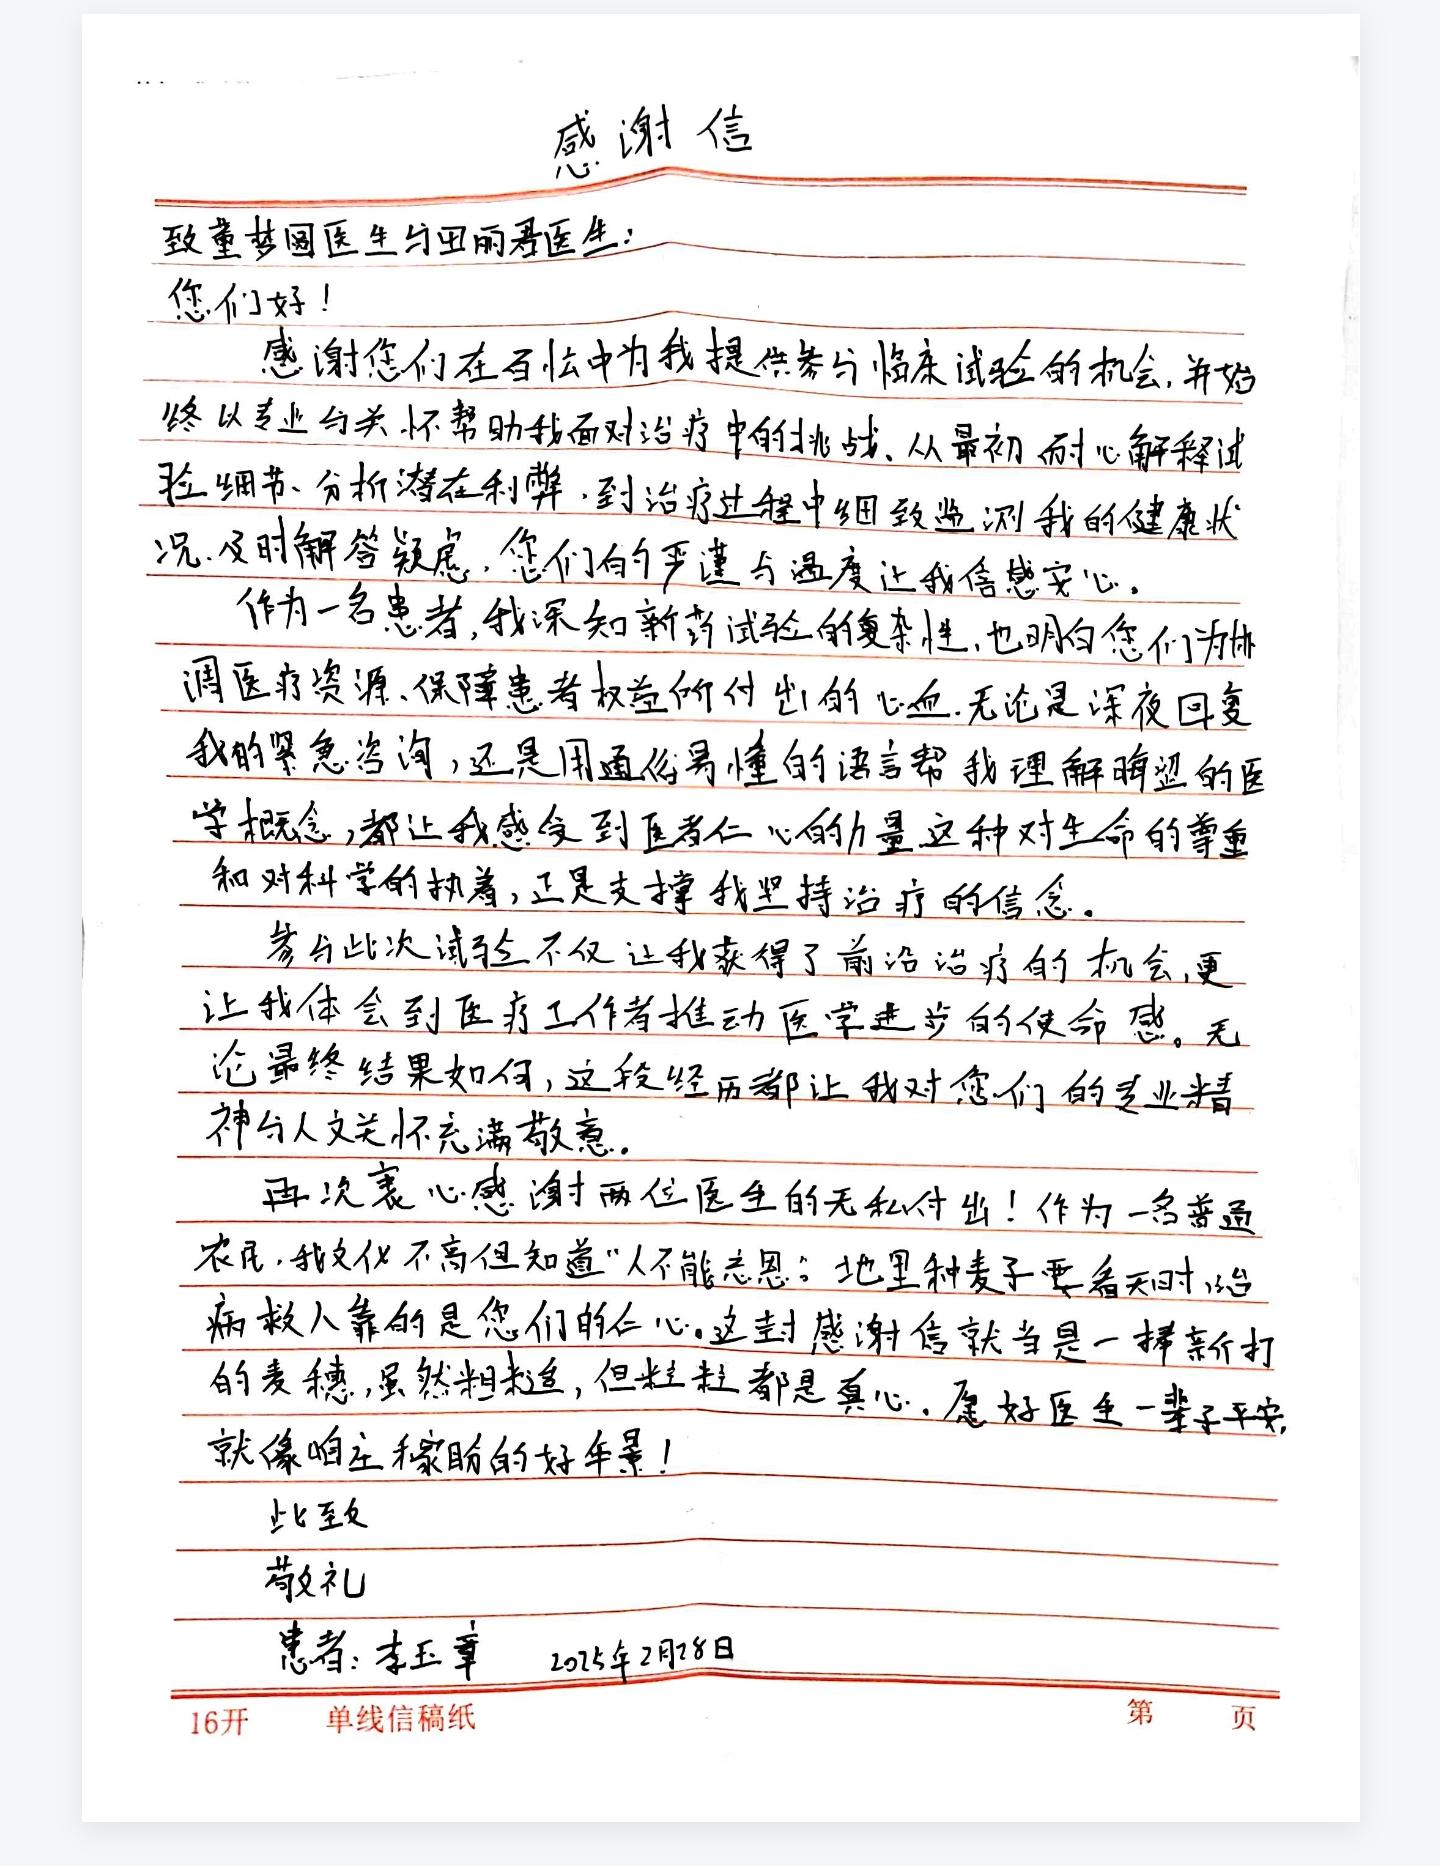 感谢信
致童梦园医生与田丽君医生:
您们好!
感谢您们在百忙中为我提供参与临床试验的机会,并始
终以专业与关怀帮助我面对治疗中的挑战、从最初耐心解释试
验细节、分析潜在利弊,到治疗过程中细致监测我的健康状
况、及时解答疑虑,您们的严谨与温度让我倍感安心。
作为一名患者,我深知新药试验的复杂性,也明白您们为协
调医疗资源、保障患者权益所付出的心血.无论是深夜回复
我的紧急咨询,还是用通俗易懂的语言帮我理解晦涩的医
学概念,都让我感受到医者仁心的力量.这种对生命的尊重
和对科学的执着,正是支撑我坚持治疗的信念。
参与此次试验不仅让我获得了前沿治疗的机会,更
让我体会到医疗工作者推动医学进步的使命感。无
论最终结果如何,这段经历都让我对您们的专业精
神与人文关怀充满敬意。
再次衷心感谢两位医生的无私付出!作为一名普通
农民,我文化不高但知道"人不能忘恩":地里种麦子要看天时,治
病救人靠的是您们的仁心。这封感谢信就当是一捧新打
的麦穗,虽然粗糙,但粒粒都是真心.愿好医生一辈子平安,
就像咱庄稼盼的好年景!
此致
敬礼
患者:李玉章 2025年2月28日
16开 单线信稿纸 第 页